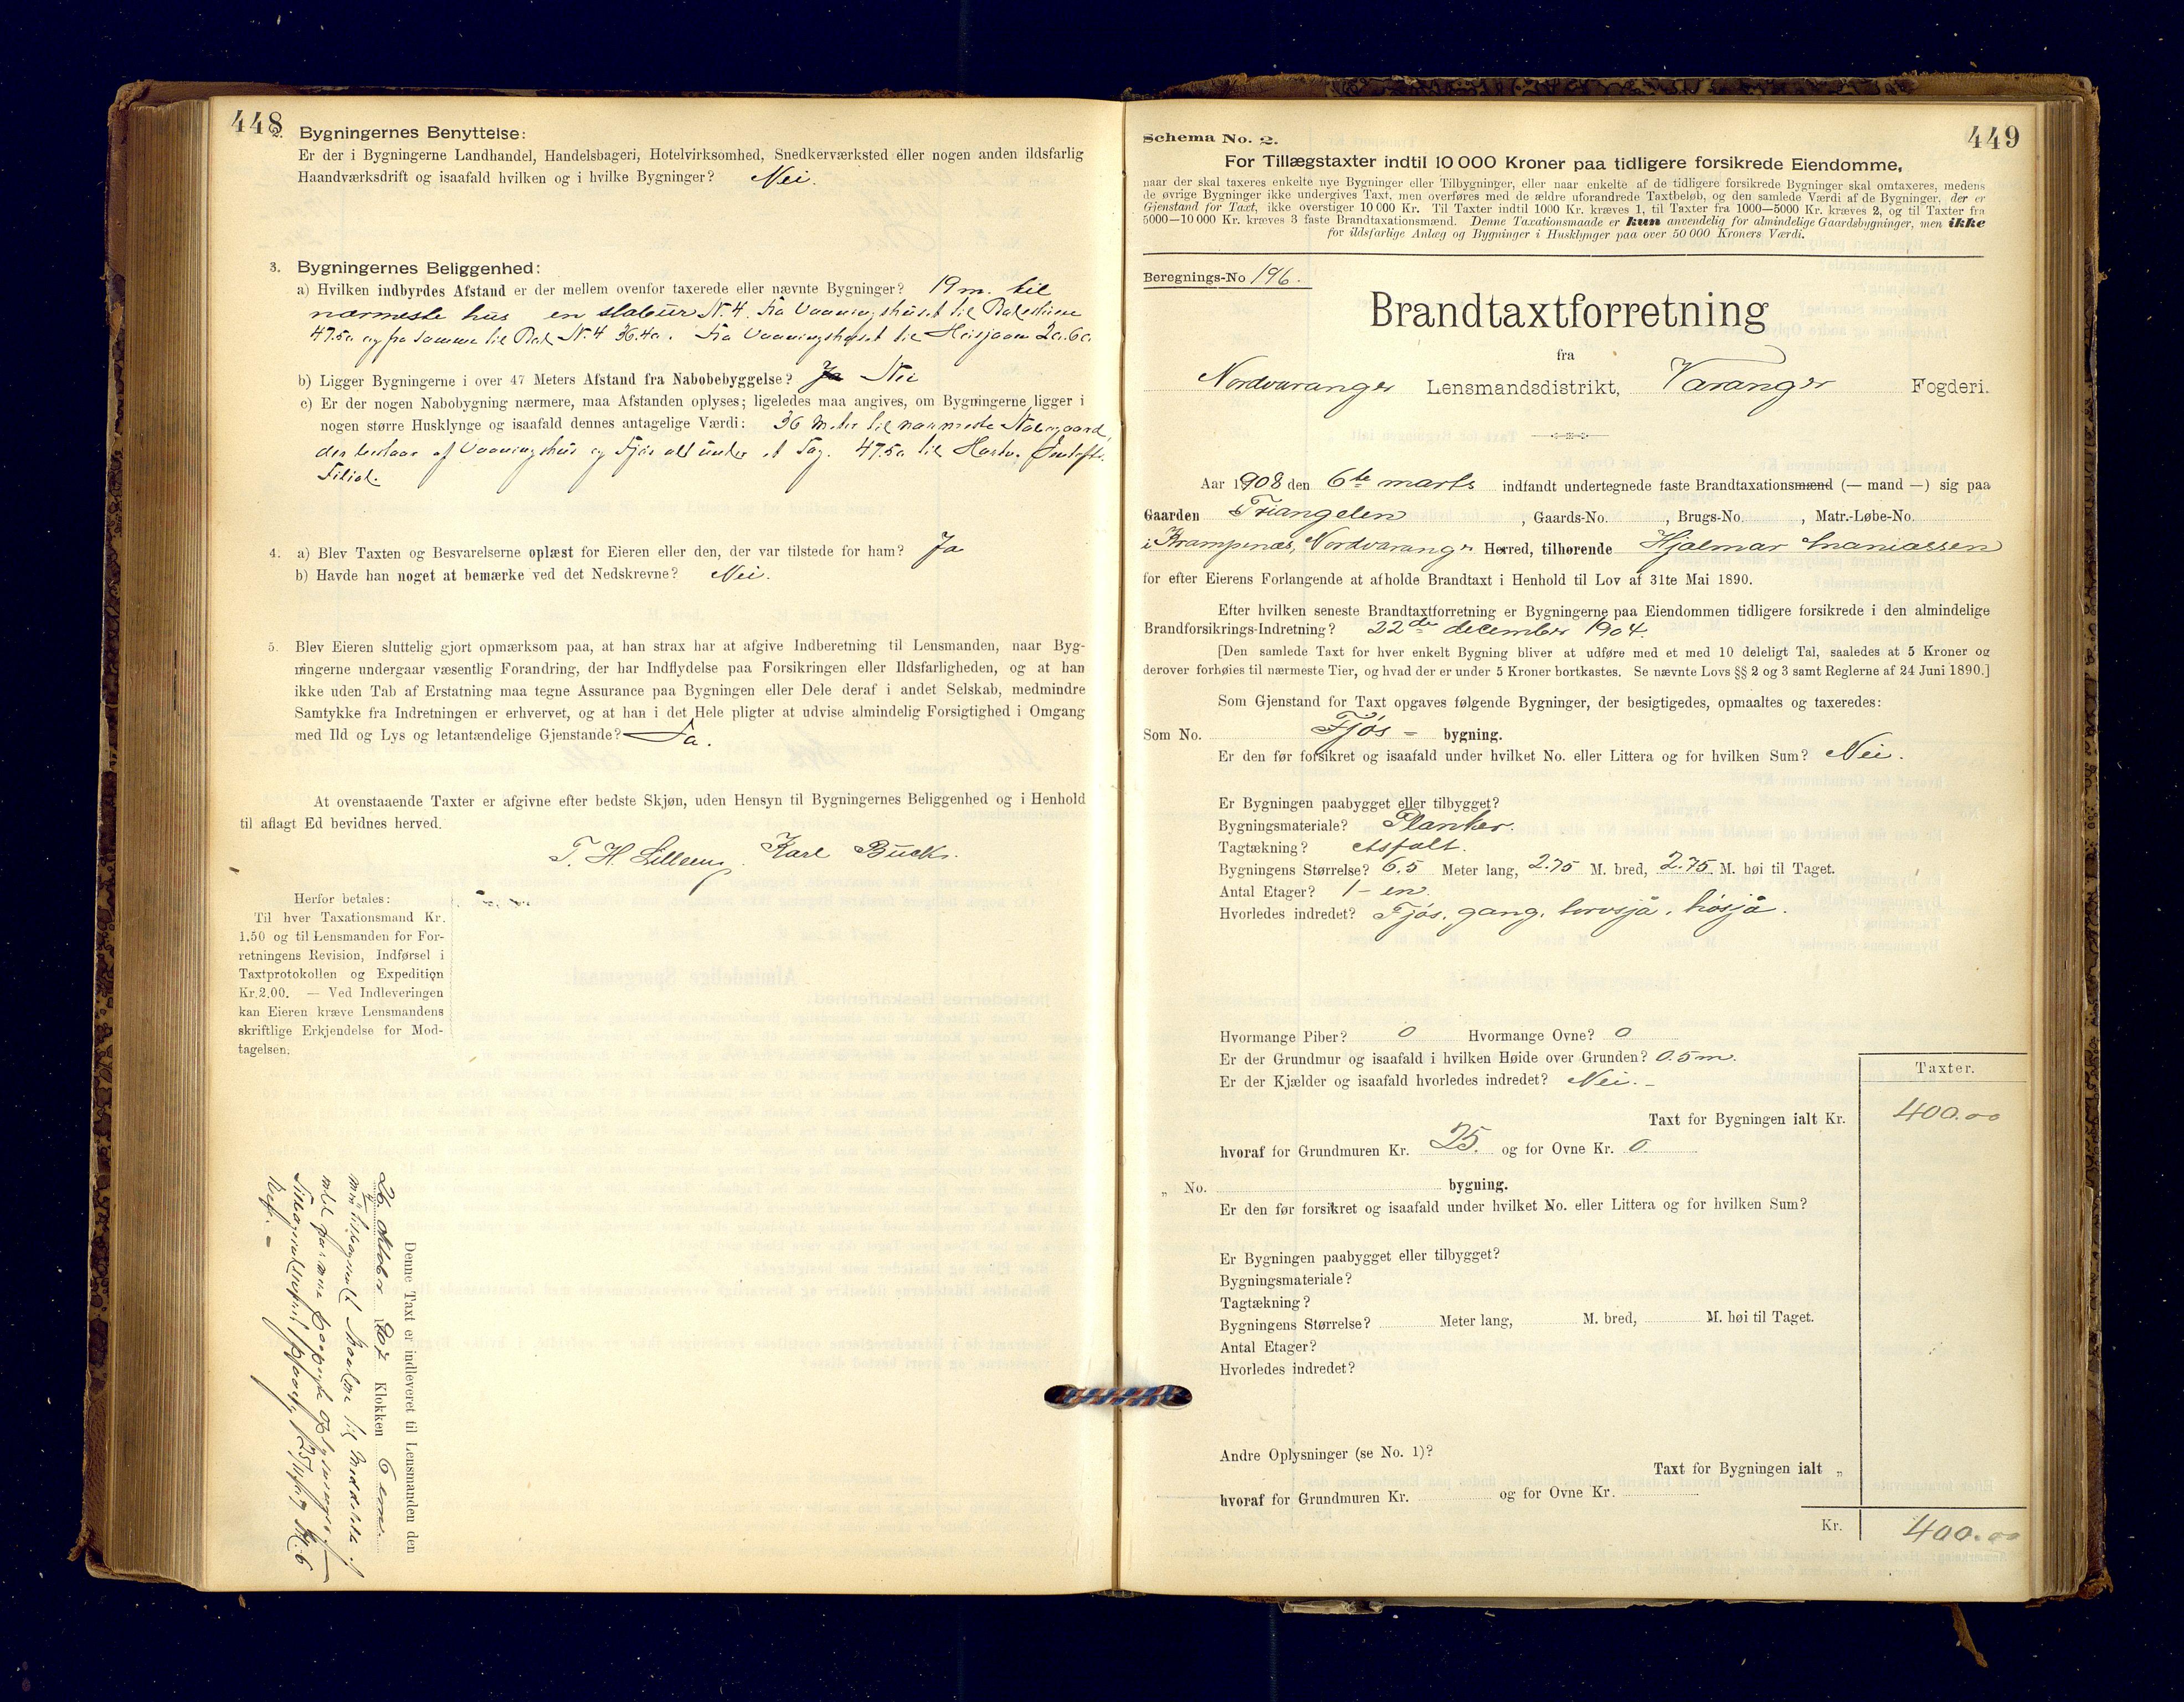 448
2. Bygningernes Benyttelse:
Er der i Bygningerne Landhandel, Handelsbageri, Hotelvirksomhed, Snedkerværksted eller nogen anden ildsfarlig
Haandværksdrift og isaafald hvilken og i hvilke Bygninger? Nei.
3. Bygningernes Beliggenhed:
a) Hvilken indbyrdes Afstand er der mellem ovenfor taxerede eller nævnte Bygninger? 19 m. til
nærmeste hus en stabur N. 4. Fra Vaaningshuset til
47.50 og fra samme til N. 4 36.40. Fra Vaaningshuset til 20.60
b) Ligger Bygningerne i over 47 Meters Afstand fra Nabobebyggelse? Ja Nei
c) Er der nogen Nabobygning nærmere, maa Afstanden oplyses; ligeledes maa angives, om Bygningerne ligger i
nogen større Husklynge og isaafald dennes antagelige Værdi: 36 meter til nærmeste Nabogaard,
der bestaar af Vaaningshus og Fjøs alt under et Tag. 47.50 til
Filial.
4. a) Blev Taxten og Besvarelserne oplæst for Eieren eller den, der var tilstede for ham? Ja
b) Havde han noget at bemærke ved det Nedskrevne? Nei.
5. Blev Eieren sluttelig gjort opmærksom paa, at han strax har at afgive Indberetning til Lensmanden, naar Byg-
ningerne undergaar væsentlig Forandring, der har Indflydelse paa Forsikringen eller Ildsfarligheden, og at han
ikke uden Tab af Erstatning maa tegne Assurance paa Bygningen eller Dele deraf i andet Selskab, medmindre
Samtykke fra Indretningen er erhvervet, og at han i det Hele pligter at udvise almindelig Forsigtighed i Omgang
med Ild og Lys og letantændelige Gjenstande? Ja.
At ovenstaaende Taxter er afgivne efter bedste Skjøn, uden Hensyn til Bygningernes Beliggenhed og i Henhold
til aflagt Ed bevidnes herved.
T. H. Lilleeng. Karl Buck.
Herfor betales:
Til hver Taxationsmand Kr.
1.50 og til Lensmanden for For-
retningens Revision, Indførsel i
Taxtprotokollen og Expedition
Kr. 2.00. — Ved Indleveringen
kan Eieren kræve Lensmandens
skriftlige Erkjendelse for Mod-
tagelsen.
Denne Taxt er indleveret til Lensmanden den
26 oktober 1907 Klokken 6 em.
449
Schema No. 2.
For Tillægstaxter indtil 10 000 Kroner paa tidligere forsikrede Eiendomme,
naar der skal taxeres enkelte nye Bygninger eller Tilbygninger, eller naar enkelte af de tidligere forsikrede Bygninger skal omtaxeres, medens
de øvrige Bygninger ikke undergives Taxt, men overføres med de ældre uforandrede Taxtbeløb, og den samlede Værdi af de Bygninger, der er
Gjenstand for Taxt, ikke overstiger 10 000 Kr. Til Taxter indtil 1000 Kr. kræves 1, til Taxter fra 1000—5000 Kr. kræves 2, og til Taxter fra
5000—10 000 Kr. kræves 3 faste Brandtaxationsmænd. Denne Taxationsmaade er kun anvendelig for almindelige Gaardsbygninger, men ikke
for ildsfarlige Anlæg og Bygninger i Husklynger paa over 50 000 Kroners Værdi.
Beregnings-No 196.
Brandtaxtforretning
fra
Nordvaranger Lensmandsdistrikt, Varanger Fogderi.
Aar 1908 den 6te marts indfandt undertegnede faste Brandtaxationsmænd (— mand —) sig paa
Gaarden Triangelen, Gaards-No. , Brugs-No. , Matr.-Løbe-No.
i Krampenæs, Nordvaranger Herred, tilhørende Hjalmar
for efter Eierens Forlangende at afholde Brandtaxt i Henhold til Lov af 31te Mai 1890.
Efter hvilken seneste Brandtaxtforretning er Bygningerne paa Eiendommen tidligere forsikrede i den almindelige
Brandforsikrings-Indretning? 22de december 1904.
[Den samlede Taxt for hver enkelt Bygning bliver at udføre med et med 10 deleligt Tal, saaledes at 5 Kroner og
derover forhøies til nærmeste Tier, og hvad der er under 5 Kroner bortkastes. Se nævnte Lovs §§ 2 og 3 samt Reglerne af 24 Juni 1890.]
Som Gjenstand for Taxt opgaves følgende Bygninger, der besigtigedes, opmaaltes og taxeredes:
Som No. Fjøs - bygning.
Er den før forsikret og isaafald under hvilket No. eller Littera og for hvilken Sum? Nei.
Er Bygningen paabygget eller tilbygget?
Bygningsmateriale? Planker.
Tagtækning? Asfalt.
Bygningens Størrelse? 6.5 Meter lang, 2.75 M. bred, 2.75 M. høi til Taget.
Antal Etager? 1 - en.
Hvorledes indreded? Fjøs, gang, torvsjå, høsjå.
Hvormange Piber? 0 Hvormange Ovne? 0
Er der Grundmur og isaafald i hvilken Høide over Grunden? 0.5 m.
Er der Kjælder og isaafald hvorledes indredet? Nei. -
Taxter.
Taxt for Bygningen ialt Kr. 400.00
hvoraf for Grundmuren Kr. 25. og for Ovne Kr. 0.
„ No. bygning.
Er den før forsikret og isaafald under hvilket No. eller Littera og for hvilken Sum?
Er Bygningen paabygget eller tilbygget?
Bygningsmateriale?
Tagtækning?
Bygningens Størrelse? Meter lang, M. bred, M. høi til Taget.
Antal Etager?
Hvorledes indredet?
Andre Oplysninger (se No. 1)?
Taxt for Bygningen ialt „
hvoraf for Grundmuren Kr. og for Ovne Kr.
Kr. 400.00